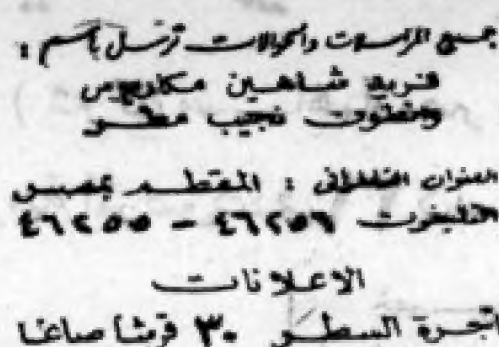 جميع المراسلات والحوالات ترسل باسم :
فريد شاهين مكاريوس
وانطون نجيب مطر
العنوان التلغرافي : المقطم بمصر
التليفون ٤٦٢٥٦ - ٤٦٢٥٥
الاعلانات
اجرة السطر ٣٠ قرشا صاغا